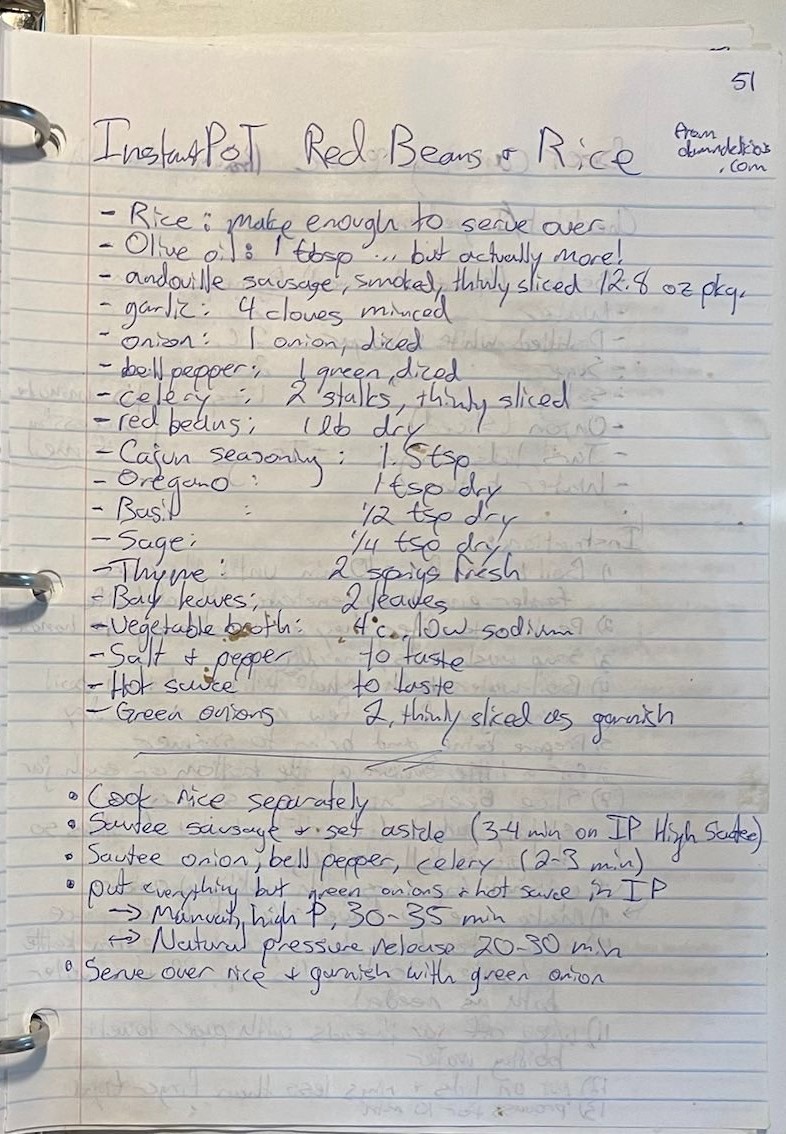 51
InstantPot Red Beans + Rice
from
damndelicious
.com
- Rice: make enough to serve over
- Olive oil: 1 tbsp ... but actually more!
- andouille sausage, smoked, thinly sliced 12.8 oz pkg.
- garlic: 4 cloves minced
- onion: 1 onion, diced
- bell pepper: 1 green, diced
- celery: 2 stalks, thinly sliced
- red beans: 1 lb dry
- Cajun seasoning: 1.5 tsp
- Oregano: 1 tsp dry
- Basil: 1/2 tsp dry
- Sage: 1/4 tsp dry
- Thyme: 2 sprigs fresh
- Bay leaves: 2 leaves
- Vegetable broth: 4 c, low sodium
- Salt + pepper to taste
- Hot sauce to taste
- Green onions 2, thinly sliced as garnish
• Cook rice separately
• Sautee sausage + set aside (3-4 min on IP High Sautee)
• Sautee onion, bell pepper, celery (2-3 min)
• put everything but green onions + hot sauce in IP
→ Manual, high P, 30-35 min
↔ Natural pressure release 20-30 min
• Serve over rice + garnish with green onion